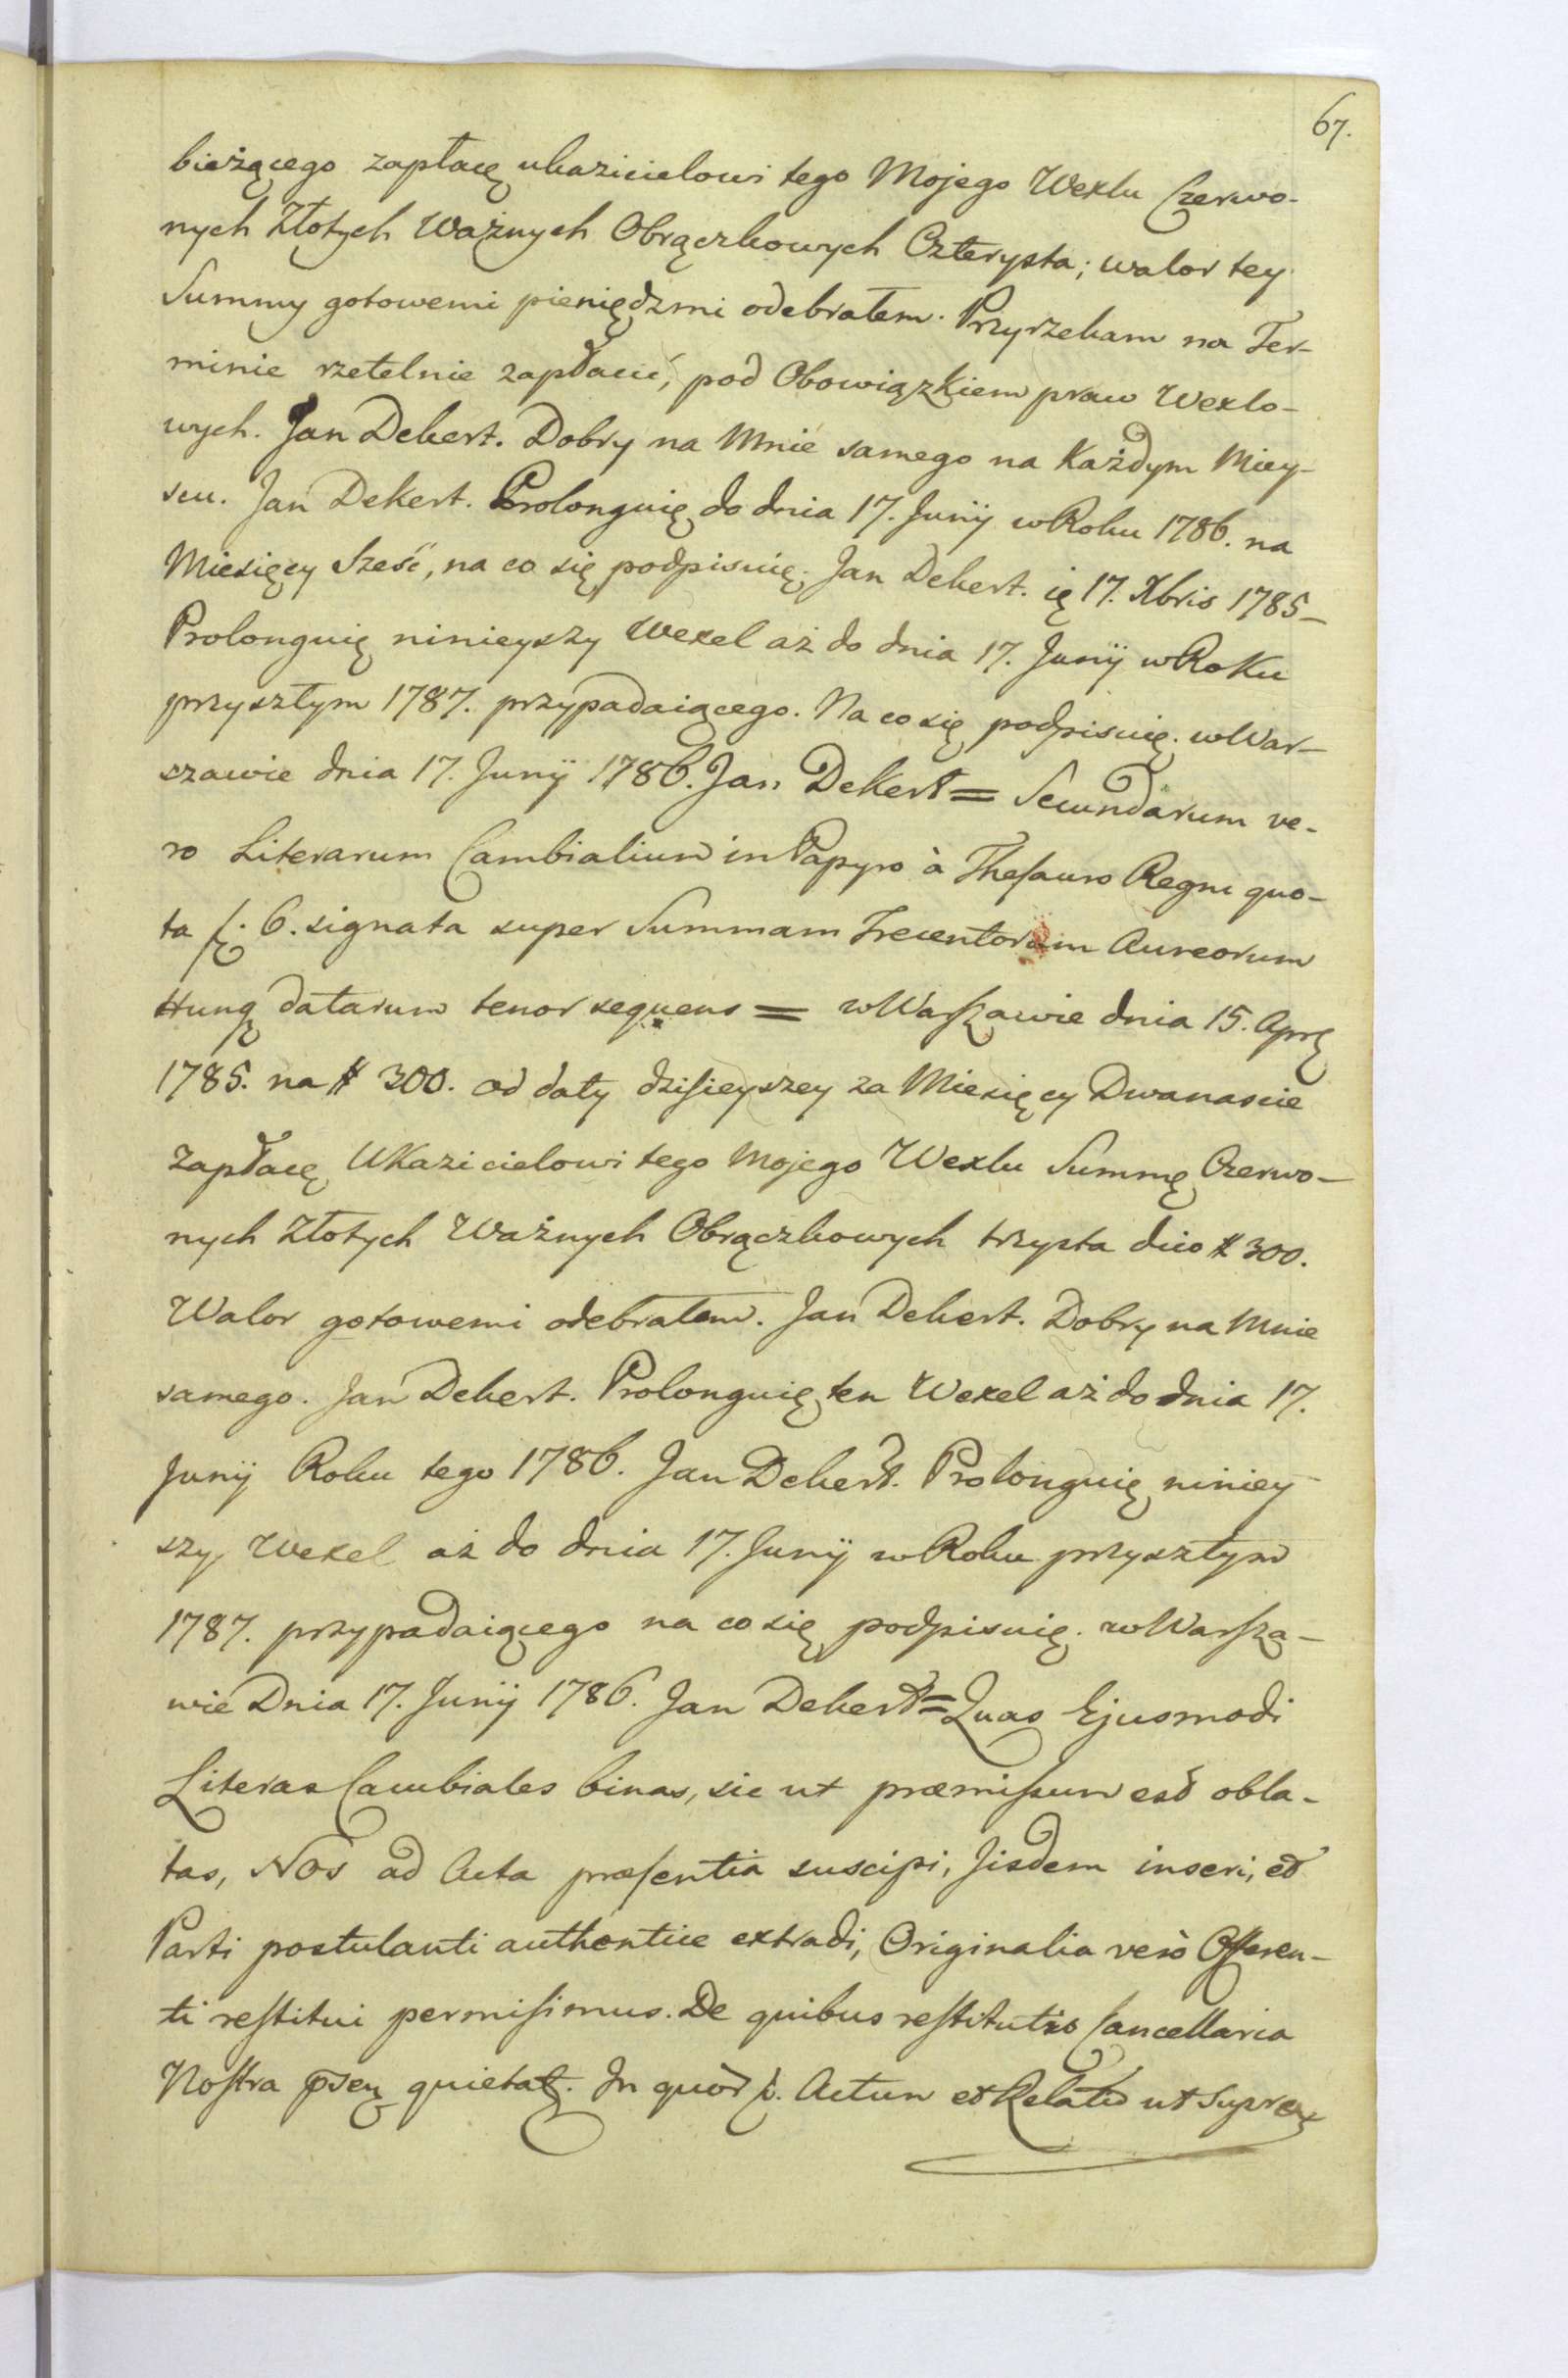 67.
bieżącego zapłacę ukazicielowi tego Mojego Wexlu Czerwo-
nych Złotych Ważnych Obrączkowych Czterysta; walor tey
Summy gotowemi pieniędzmi odebrałem. Przyrzekam na Ter-
minie rzetelnie zapłacić, pod Obowiązkiem praw Wexlo-
wych. Jan Dekert. Dobry na Mnie samego na Każdym Miey-
scu. Jan Dekert. Prolonguię do dnia 17. Junij w Roku 1786. na
Miesięcy Sześć, na co się podpisuię. Jan Dekert. 17. Xbris 1785-
Prolonguię ninieyszy Wexel aż do dnia 17. Junij w Roku
przyszłym 1787. przypadaiącego. Na co się podpisuię. w War-
szawie dnia 17. Junij 1786. Jan Dekert = Secundarum ve-
ro Literarum Cambialium in Papyro à Thesauro Regni quo-
ta f. 6. signata super Summam Trecentorum Aureorum
Hung datarum tenor sequens = w Warszawie dnia 15. Apr
1785. na # 300. od daty dzisieyszey za Miesięcy Dwanascie
zapłacę Ukazicielowi tego Mojego Wexlu Summę Czerwo-
nych Złotych Ważnych Obrączkowych trzysta dico # 300.
Walor gotowemi odebrałem. Jan Dekert. Dobry na Mnie
samego. Jan Dekert. Prolonguię ten Wexel aż do dnia 17.
Junij Roku tego 1786. Jan Dekert. Prolonguię niniey-
szy Wexel aż do dnia 17. Junij w Roku przyszłym
1787. przypadaiącego na co się podpisuię. w Warsza-
wie Dnia 17. Junij 1786. Jan Dekert = Quas Ejusmodi
Literas Cambiales binas, sic ut præmissum est obla-
tas, Nos ad Acta præsentia suscipi, Jisdem inseri, et
Parti postulanti authentice extradi, Originalia verò Offeren-
ti restitui permisimus. De quibus restitutis Cancellaria
Nostra quietat. In quòr Actum et Relatio ut Supra